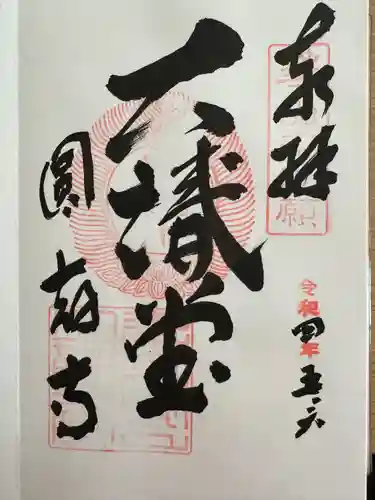 奉拝
令和四年五・六
大講堂
圓教寺